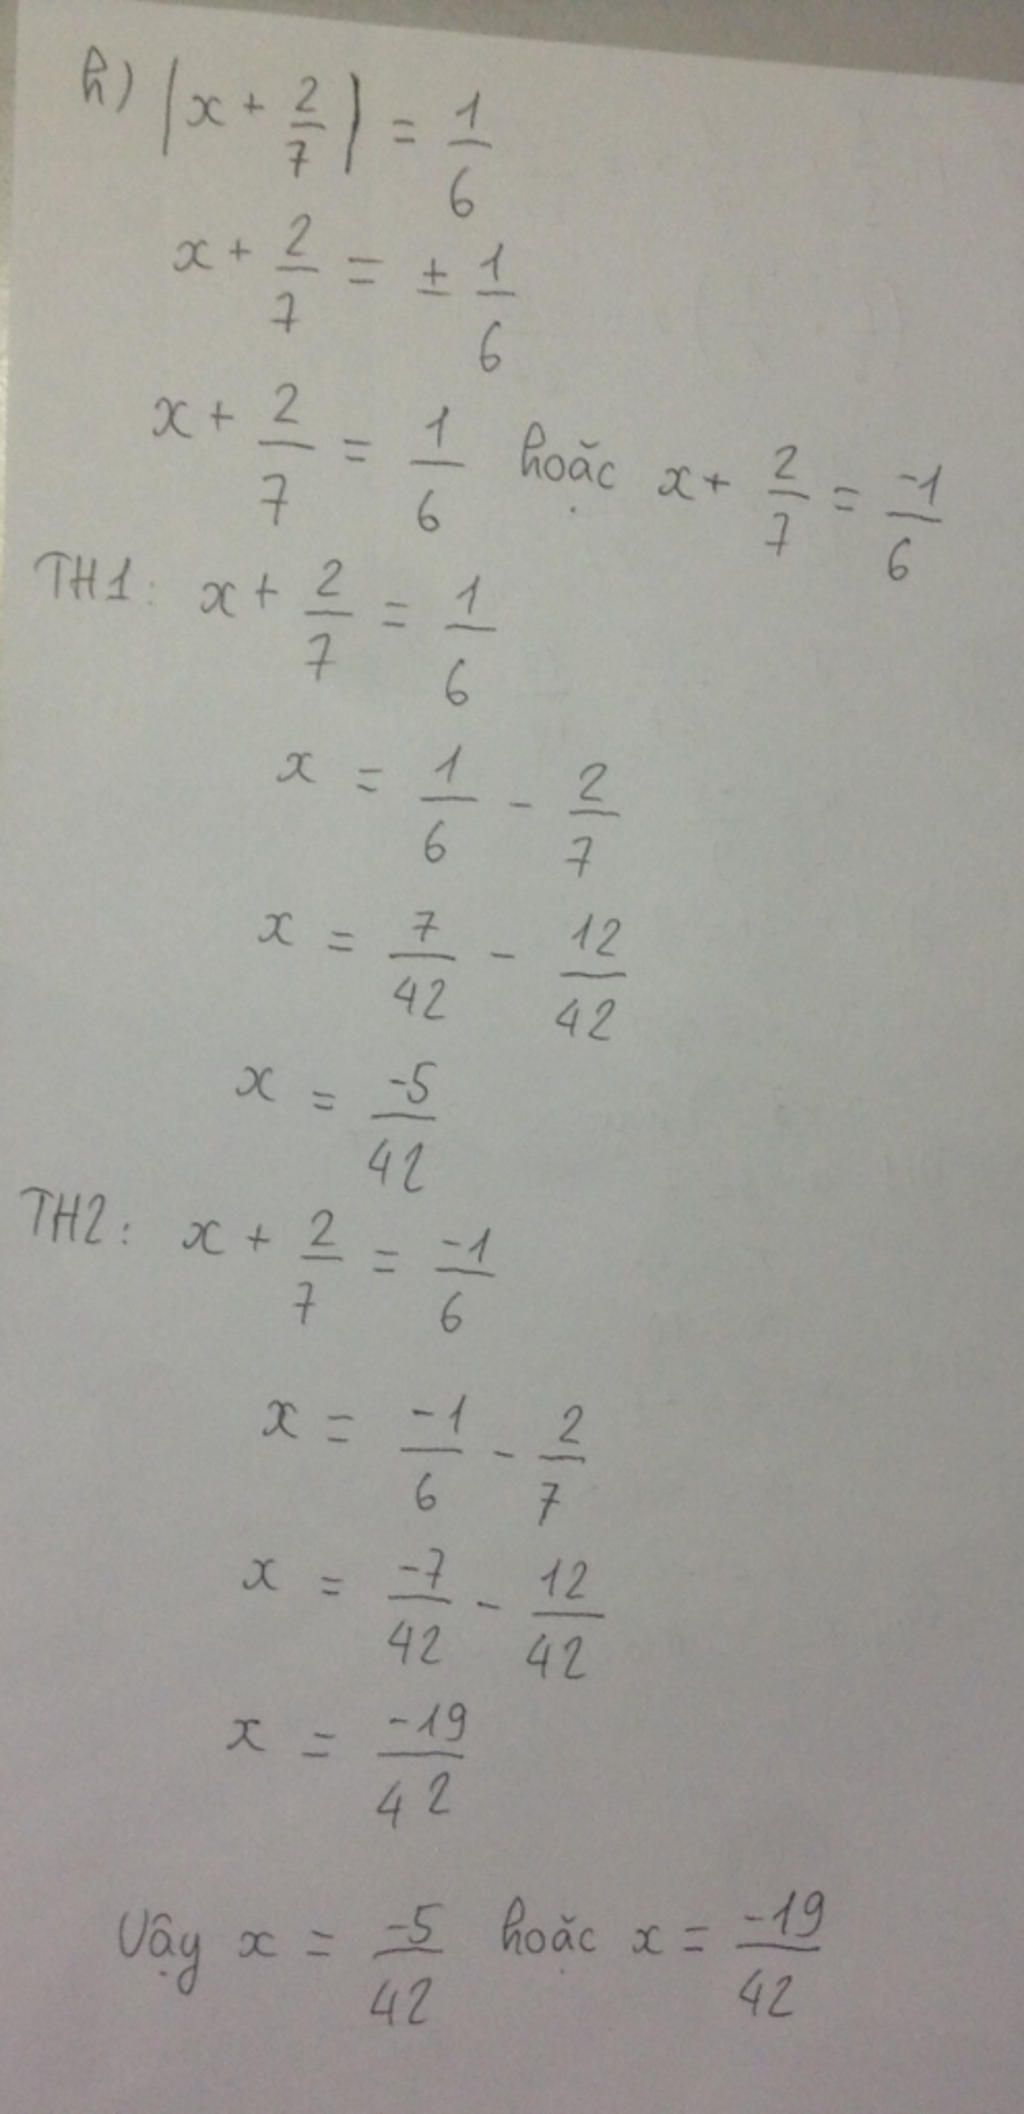 h) |x + 2/7| = 1/6
x + 2/7 = ± 1/6
x + 2/7 = 1/6 hoặc x + 2/7 = -1/6
TH1: x + 2/7 = 1/6
x = 1/6 - 2/7
x = 7/42 - 12/42
x = -5/42
TH2: x + 2/7 = -1/6
x = -1/6 - 2/7
x = -7/42 - 12/42
x = -19/42
Vậy x = -5/42 hoặc x = -19/42